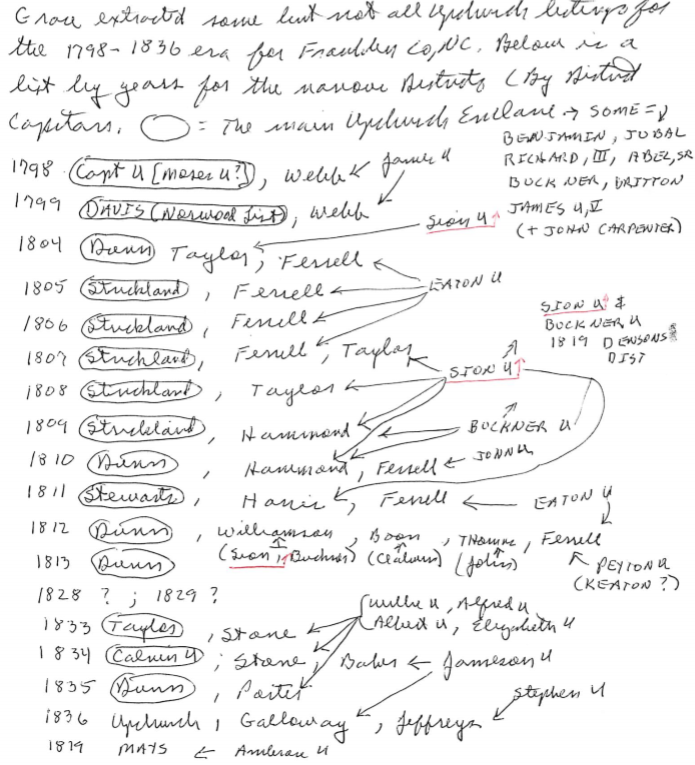 Grace extracted some but not all Upchurch listings for
the 1798-1836 era for Franklin Co, NC. Below is a
list by years for the various Districts (By District
Capitans. ○ = The main Upchurch Enclave → SOME =
BENJAMIN, JUBAL
RICHARD, III, ABEL, SR
BUCKNER, BRITTON
JAMES U, II
(+ JOHN CARPENTER)
1798 Capt U [Moses U?], Webb James U
1799 DAVIS (Norwood List), Webb
Sion U
1804 Dunn Taylor, Ferrell
EATON U
1805 Strickland, Ferrell
SION U &
BUCKNER U
1819 DENSONS
DIST
1806 Strickland, Ferrell
1807 Strickland, Ferrell, Taylor
SION U
1808 Strickland, Taylor
1809 Strickland, Hammond
BUCKNER U
1810 Dunn, Hammond, Ferrell ← JOHN U
1811 Stewarts, Harris, Ferrell ← EATON U
1812 Dunn, Williamson, Boon, Thomas, Ferrell
(Sion, Buckner) (Calvin) (John)
PEYTON U
(KEATON?)
1813 Dunn
1828 ? ; 1829 ?
Willie U, Alfred U
Albert U, Elizabeth U
1833 Taylor, Stone
1834 Calvin U; Stone, Baker ← Jameson U
1835 Dunn, Porter
Stephen U
1836 Upchurch, Galloway, Jeffreys
1819 MAYS ← Ambrose U